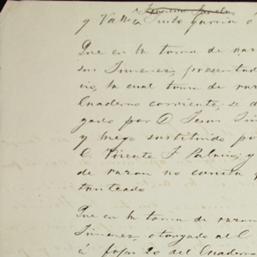 y Va
Que en la toma de raz
sus Jimenez, presentad
no, la cual toma de raz
Cuaderno corriente, se d
gado por D. Jesus
y luego sustituido por
C. Vicente F. Palacio, y
de razon no consta
tanteado
Que en la toma de razon
Jimenez, otorgado al C
á foja 20 del Cuaderno